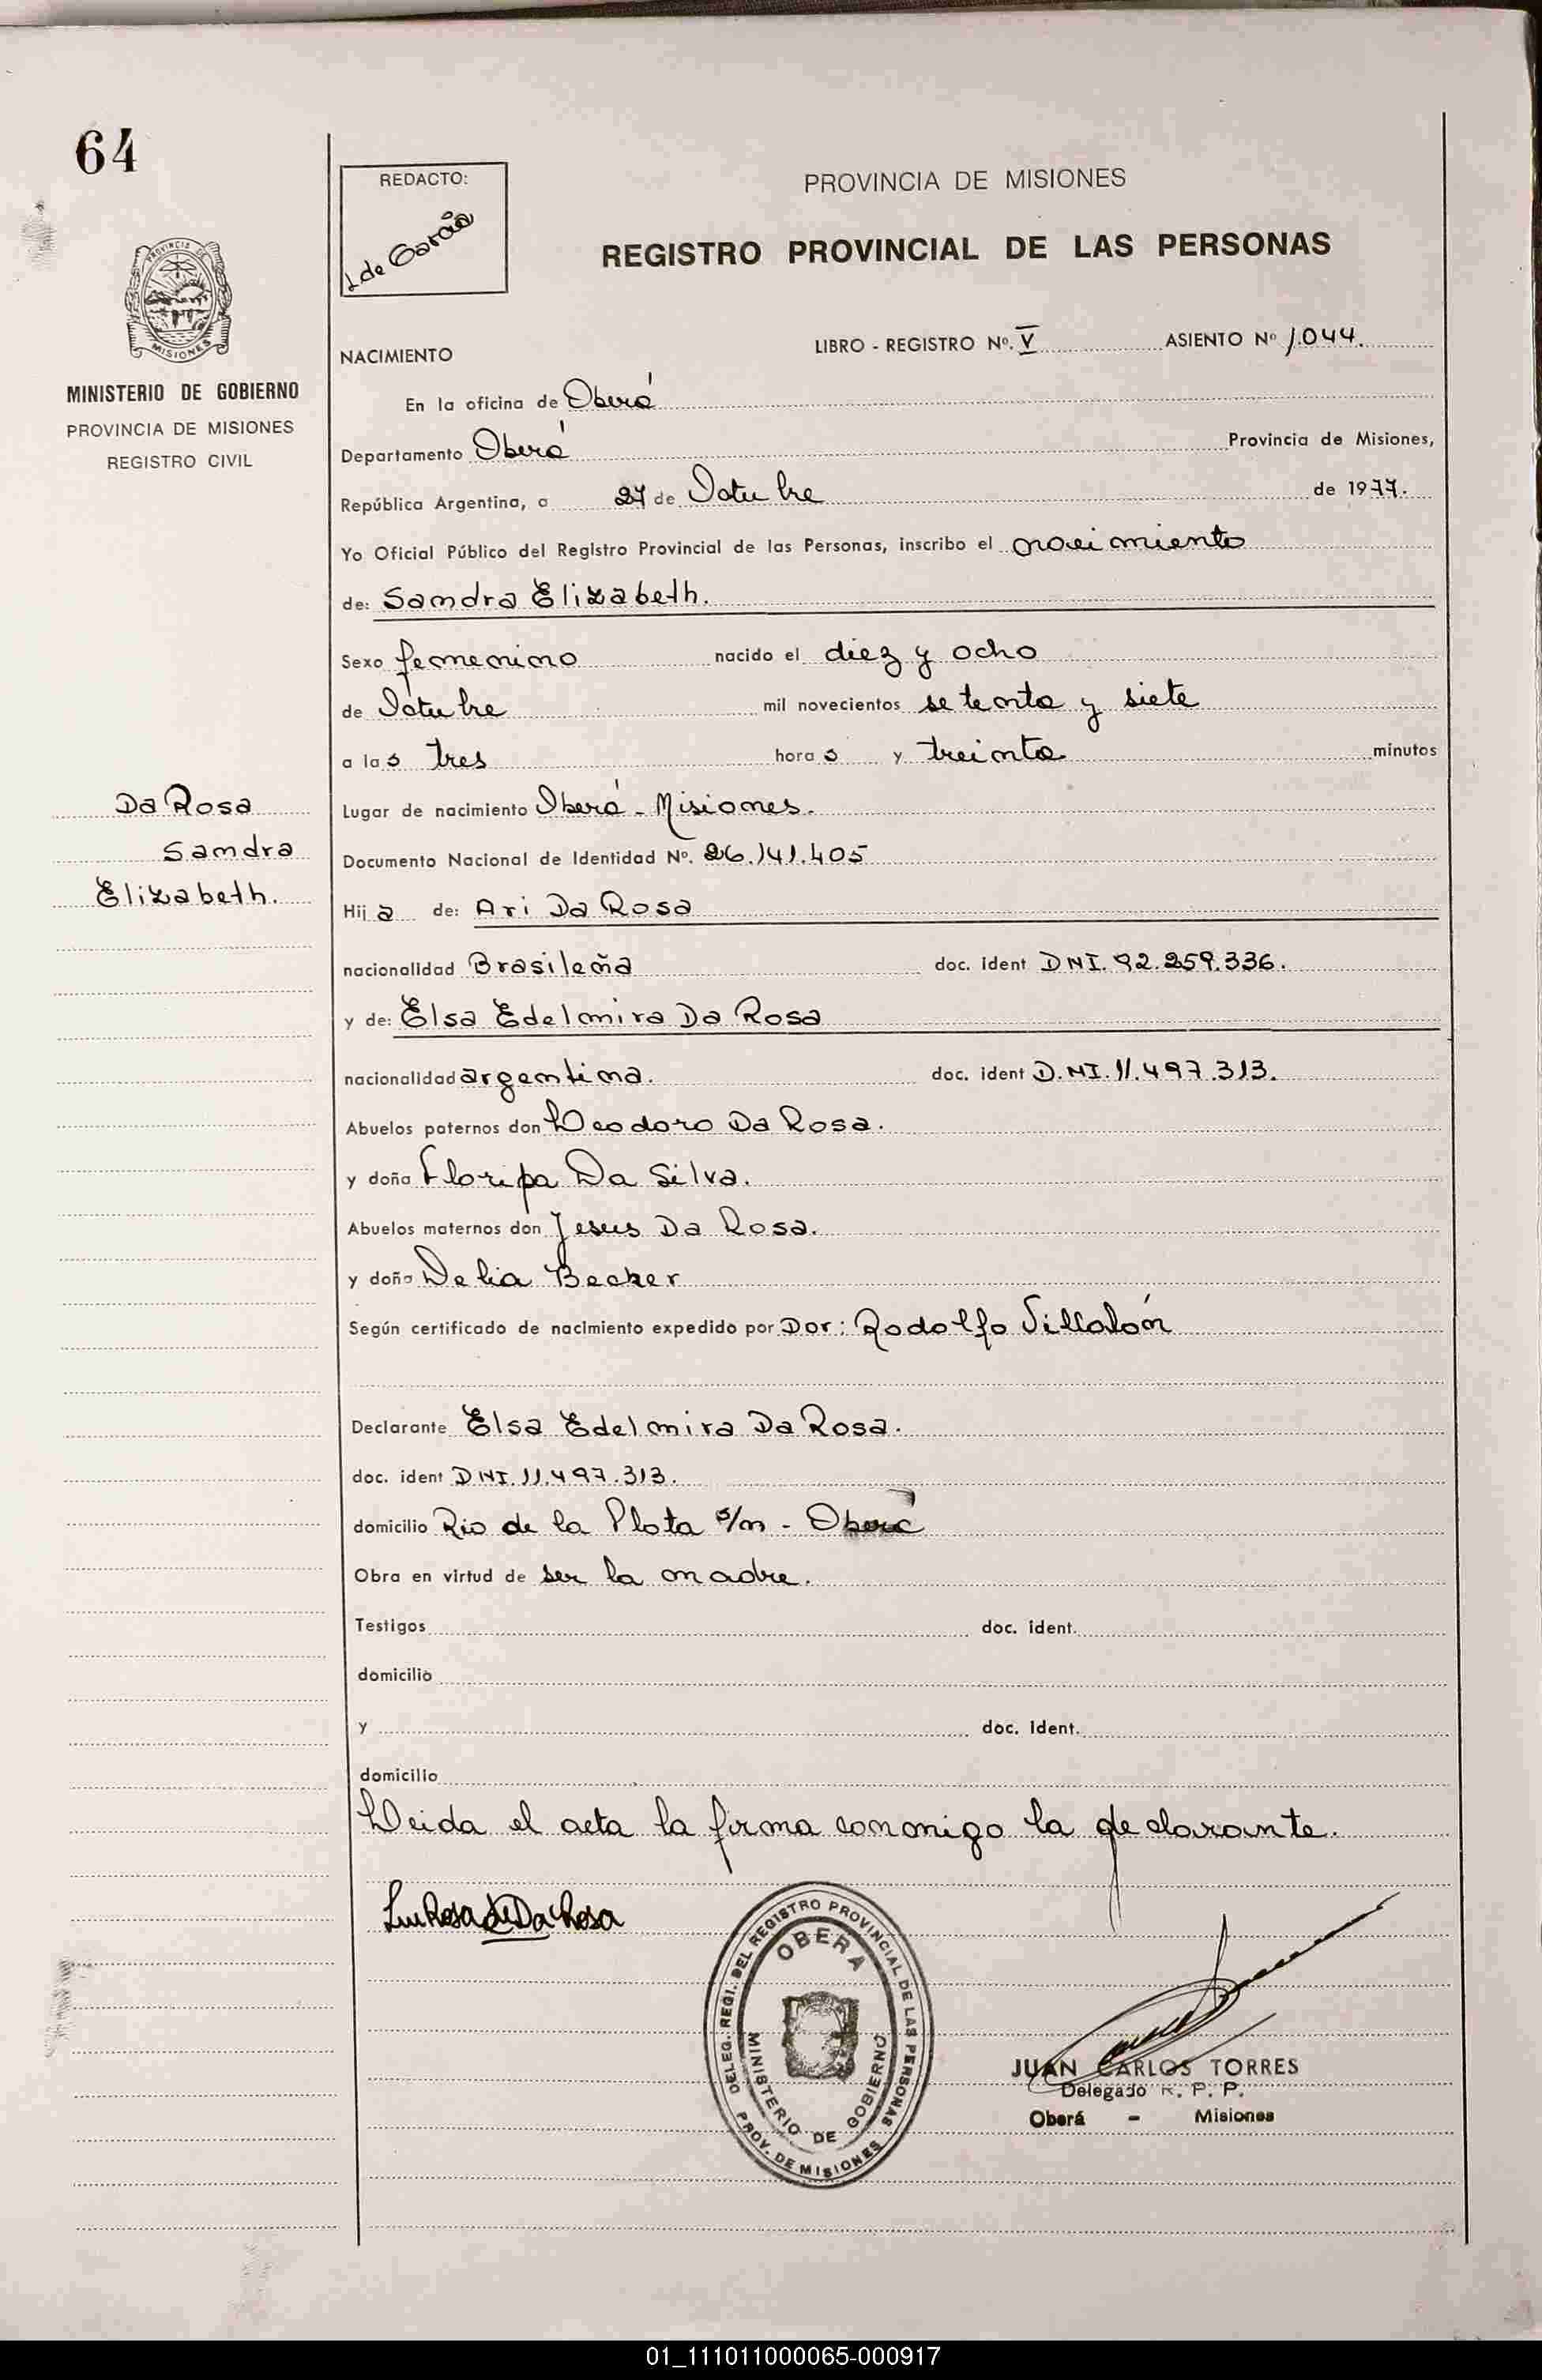 64
REDACTO:
L de Garcia
PROVINCIA DE MISIONES
REGISTRO PROVINCIAL DE LAS PERSONAS
PROVINCIA DE
MISIONES
MINISTERIO DE GOBIERNO
PROVINCIA DE MISIONES
REGISTRO CIVIL
NACIMIENTO
LIBRO - REGISTRO Nº. V ASIENTO Nº 1.044.
En la oficina de Oberá
Departamento Oberá Provincia de Misiones,
República Argentina, a 27 de Octubre de 1977.
Yo Oficial Público del Registro Provincial de las Personas, inscribo el nacimiento
de: Sandra Elizabeth.
Sexo femenino nacido el diez y ocho
de Octubre mil novecientos setenta y siete
a las tres horas y treinta minutos
Lugar de nacimiento Oberá - Misiones.
Documento Nacional de Identidad Nº. 26.141.405
Da Rosa
Sandra
Elizabeth.
Hija de: Ari Da Rosa
nacionalidad Brasileña doc. ident DNI. 92.259.336.
y de: Elsa Edelmira Da Rosa
nacionalidad argentina. doc. ident D.NI. 11.497.313.
Abuelos paternos don Deodoro Da Rosa.
y doña Floripa Da Silva.
Abuelos maternos don Jesus Da Rosa.
y doña Delia Becker
Según certificado de nacimiento expedido por Dor: Rodolfo Villalón
Declarante Elsa Edelmira Da Rosa.
doc. ident D.NI. 11.497.313.
domicilio Rio de la Plata s/n - Oberá
Obra en virtud de ser la madre.
Testigos doc. ident.
domicilio
y doc. ident.
domicilio
Leida el acta la firma conmigo la declarante.
Rosa de Da Rosa
DELEG. REGI. DEL REGISTRO PROVINCIAL DE LAS PERSONAS
OBERA
MINISTERIO DE GOBIERNO
PROV. DE MISIONES
JUAN CARLOS TORRES
Delegado R. P. P.
Oberá - Misiones
01_111011000065-000917